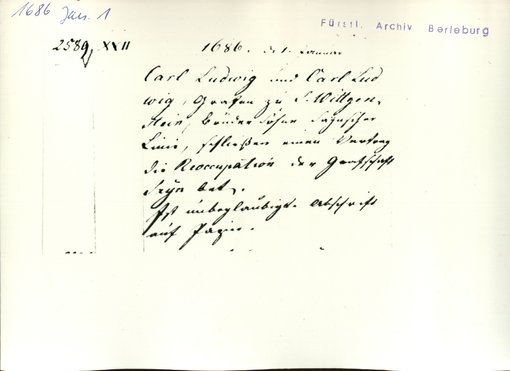 1686 Jan. 1
Fürstl. Archiv Berleburg
2589 XXII
1686. d. 1. Januar
Carl Ludwig und Carl Lud
wig, Grafen zu S. Wittgen-
stein, Brüdersöhne Saynscher
Linie, schließen einen Vertrag
die Reoccupation der Grafschaft
Sayn bet.
Ist unbeglaubigte Abschrift
auf Papier.